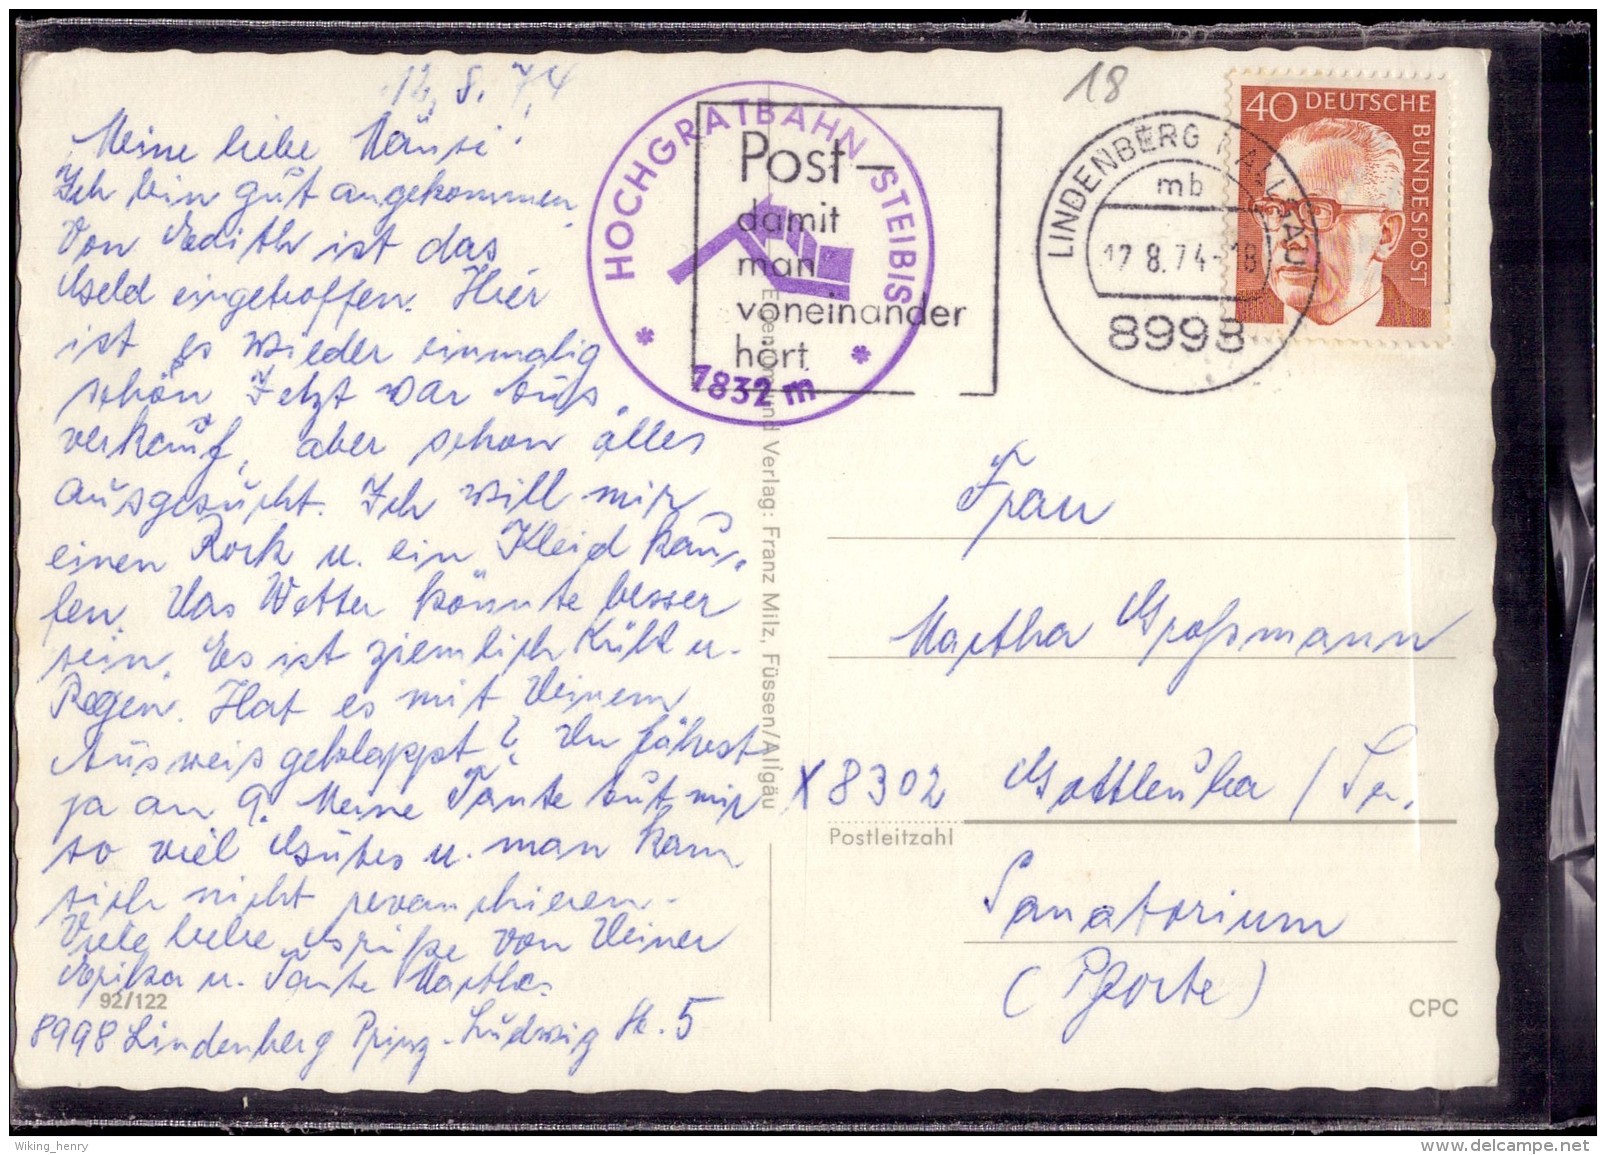 12.8.74
Meine liebe Mausi!
Ich bin gut angekommen.
Von Edith ist das
Geld eingetroffen. Hier
ist es wieder einmalig
schön. Jetzt war Aus
verkauf, aber schon alles
ausgesucht. Ich will mir
einen Rock u. ein Kleid kau-
fen. Das Wetter könnte besser
sein. Es ist ziemlich kühl u.
Regen. Hat es mit Deinem
Ausweis geklappt? Du fährst
ja am 9. Meine Tante tut mir
so viel Gutes u. man kann
sich nicht revanchieren.
Viele liebe Grüße von Deiner
Erika u. Tante Martha
92/122
8998 Lindenberg Prinz-Ludwig Str. 5
HOCHGRATBAHN STEIBIS
* 1832 m *
Post-
damit
man
voneinander
hört
Eigentum und Verlag: Franz Milz, Füssen/Allgäu
18
LINDENBERG I ALLGÄU
mb
12.8.74-18
8998
40 DEUTSCHE BUNDESPOST
Frau
Martha Großmann
X 8302 Gottleuba / Sa.
Postleitzahl
Sanatorium
(Pforte)
CPC
Wiking_henry
delcampe.net